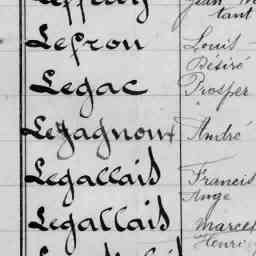 Jean
tant
Lefron Louis
Désiré
Legac Prosper
Legagnoux André
Legallais Francis
Ange
Legallais Marcel
Henri